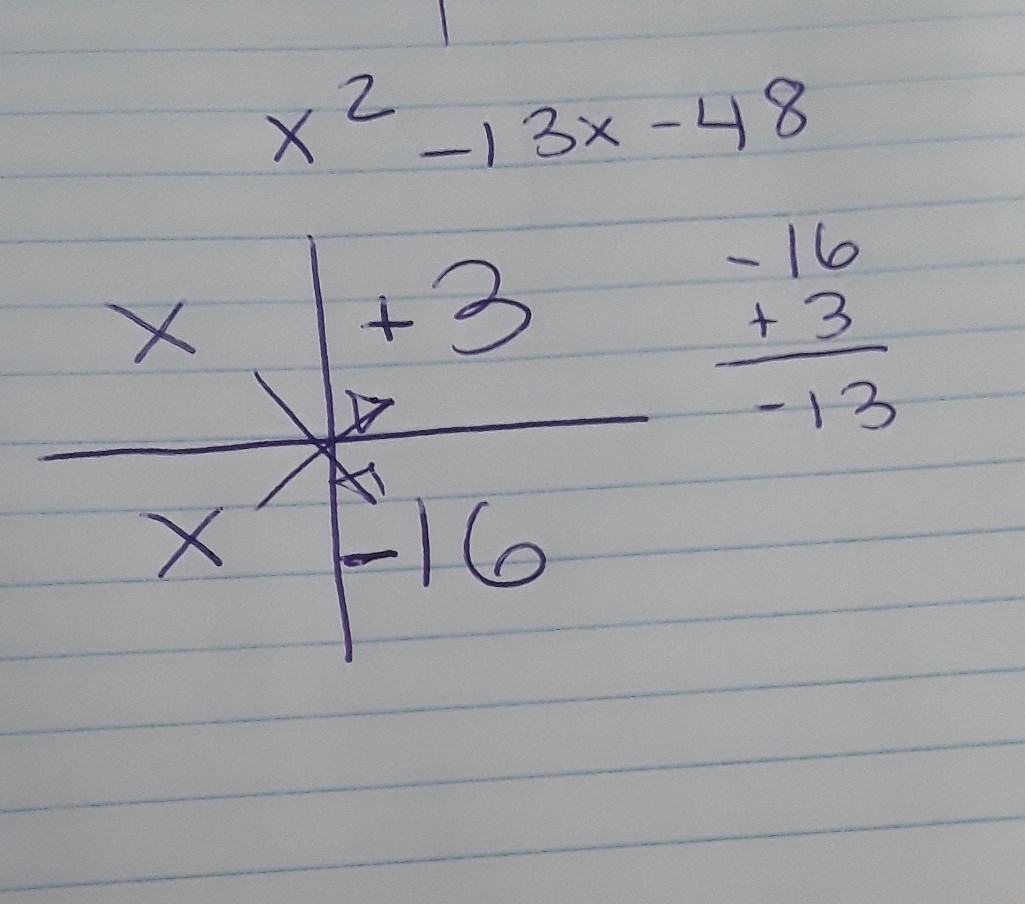 x² -13x -48
x +3
x -16
-16
+ 3
-13